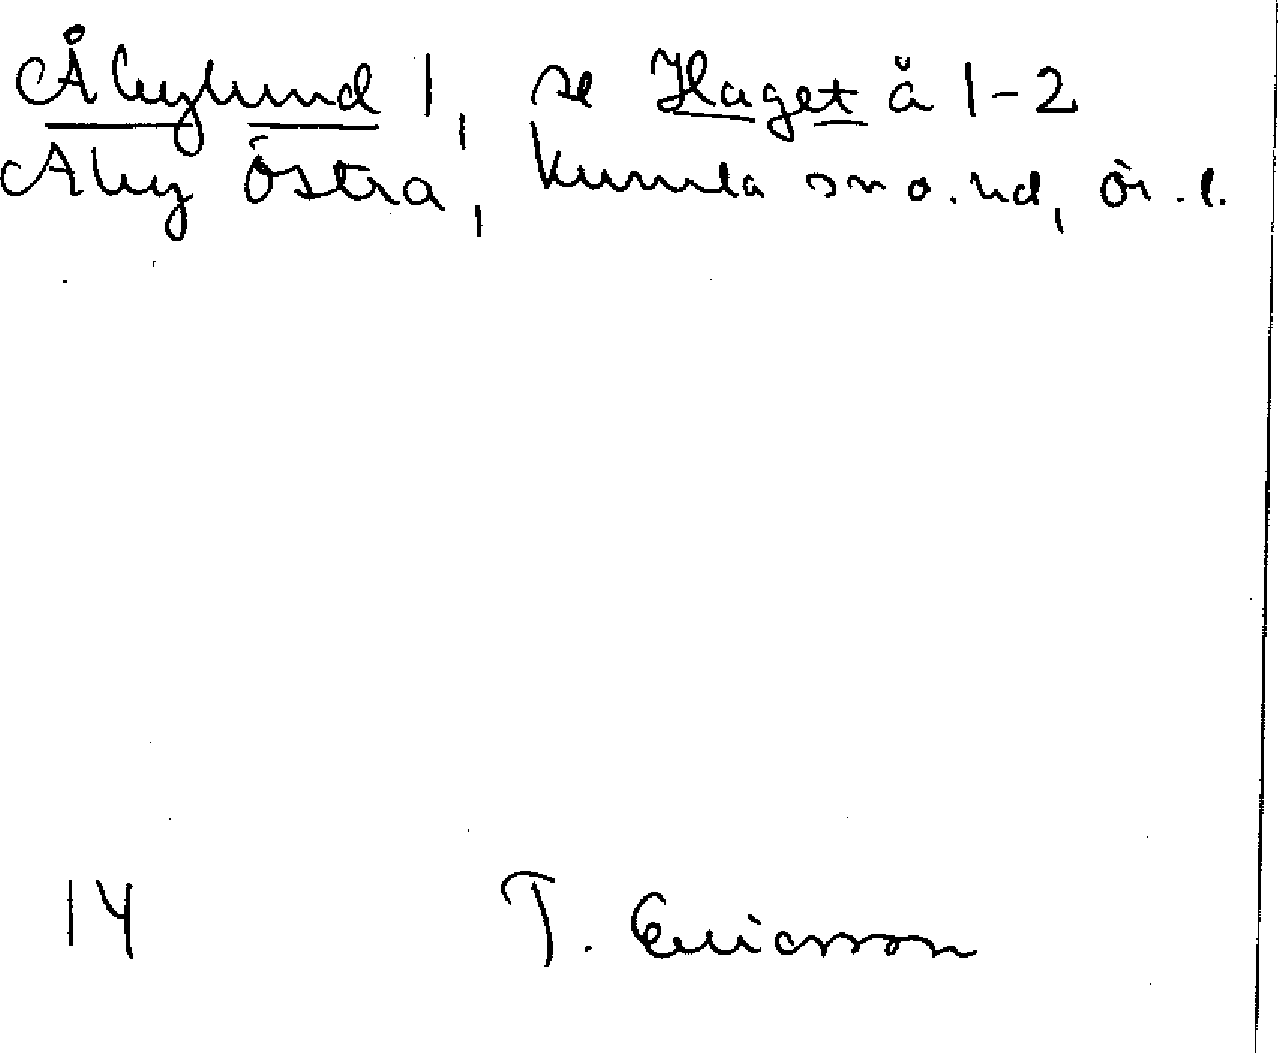 Åbylund 1, se Haget å 1-2
Åby östra, Kumla sn o. hd, Ör. l.
14 T. Ericsson